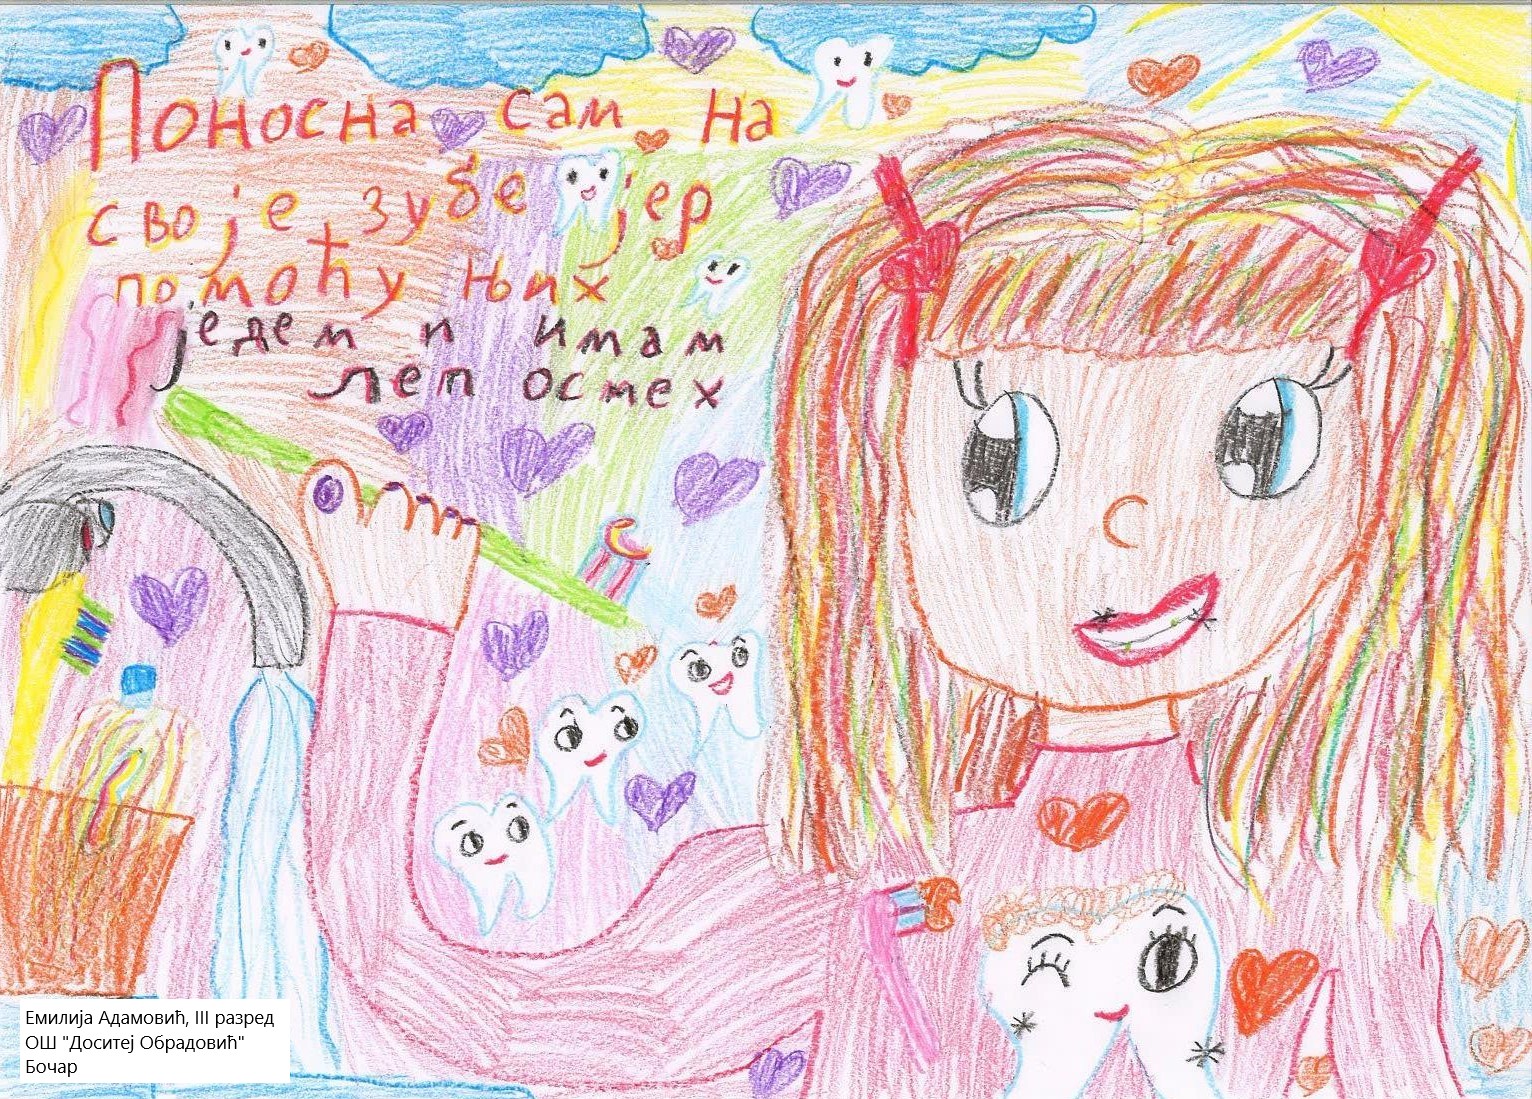 Поносна сам на
своје зубе јер
помоћу њих
једем и имам
леп осмех
Емилија Адамовић, III разред
ОШ "Доситеј Обрадовић"
Бочар